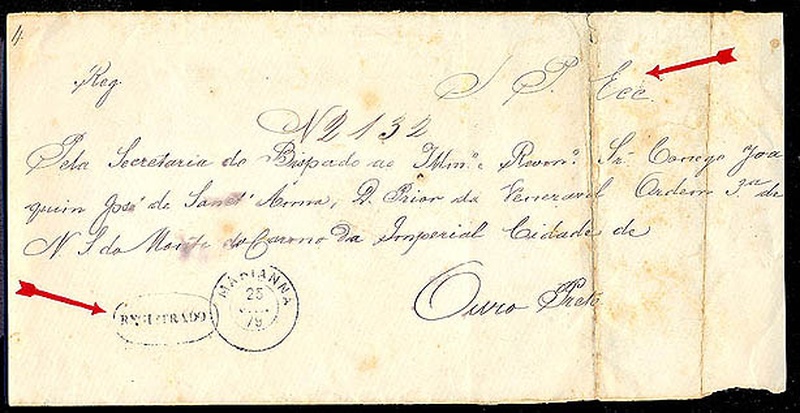 4
Reg.
S. P. Ecc.
N 2132
Pela Secretaria do Bispado ao Illm.º e Revm.º Sr. Conego Joa
quim José de Sanct'Anna, D. Prior da Veneravel Ordem 3.ª de
N S do Monte do Carmo da Imperial Cidade de
Ouro Preto
REGISTRADO
MARIANNA
25
79